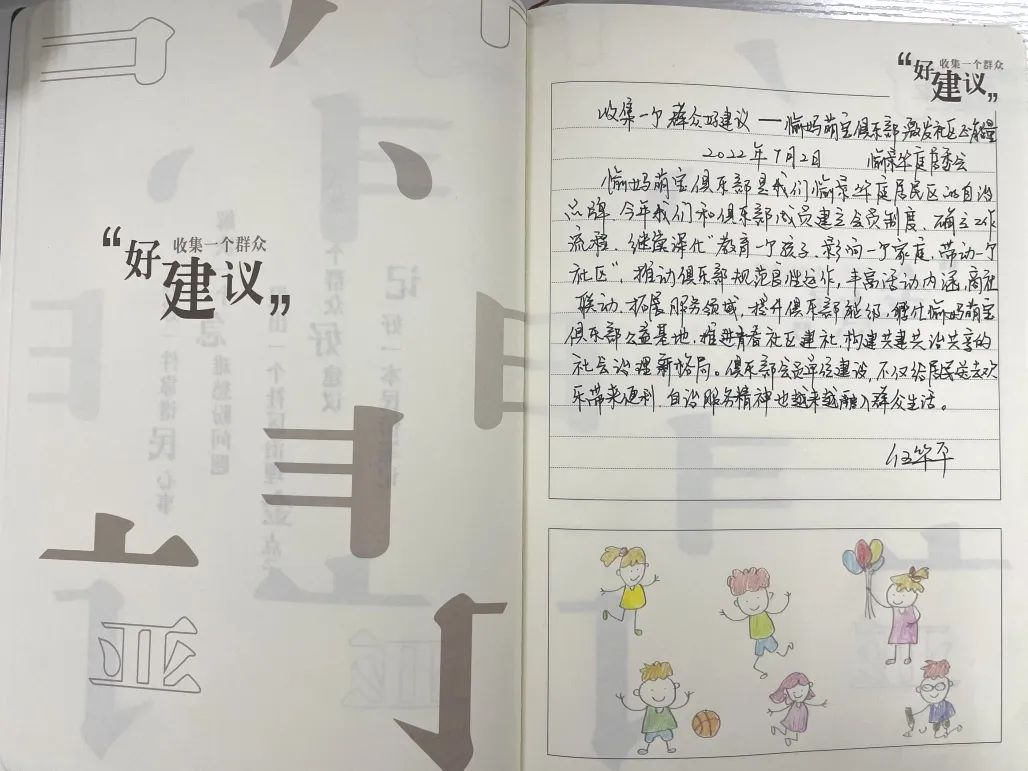 “好
收集一个群众
建议”
亚
“好
收集一个群众
建议”
收集一个群众好建议——愉妈萌宝俱乐部激发社区正能量
2022年7月2日 愉景华庭居委会
愉妈萌宝俱乐部是我们愉景华庭居民区的自治
品牌.今年我们和俱乐部成员建立会员制度,确立工作
流程.继续深化“教育一个孩子.影响一个家庭.带动一个
社区”,推动俱乐部规范良性运作,丰富活动内涵,商社
联动.拓展服务领域.提升俱乐部能级,依仗愉妈萌宝
俱乐部公益基地,推进青春社区建设,构建共建共治共享的
社会治理新格局。俱乐部会员单位建设,不仅给居民
乐带来便利.自治服务精神也越来越融入群众生活。